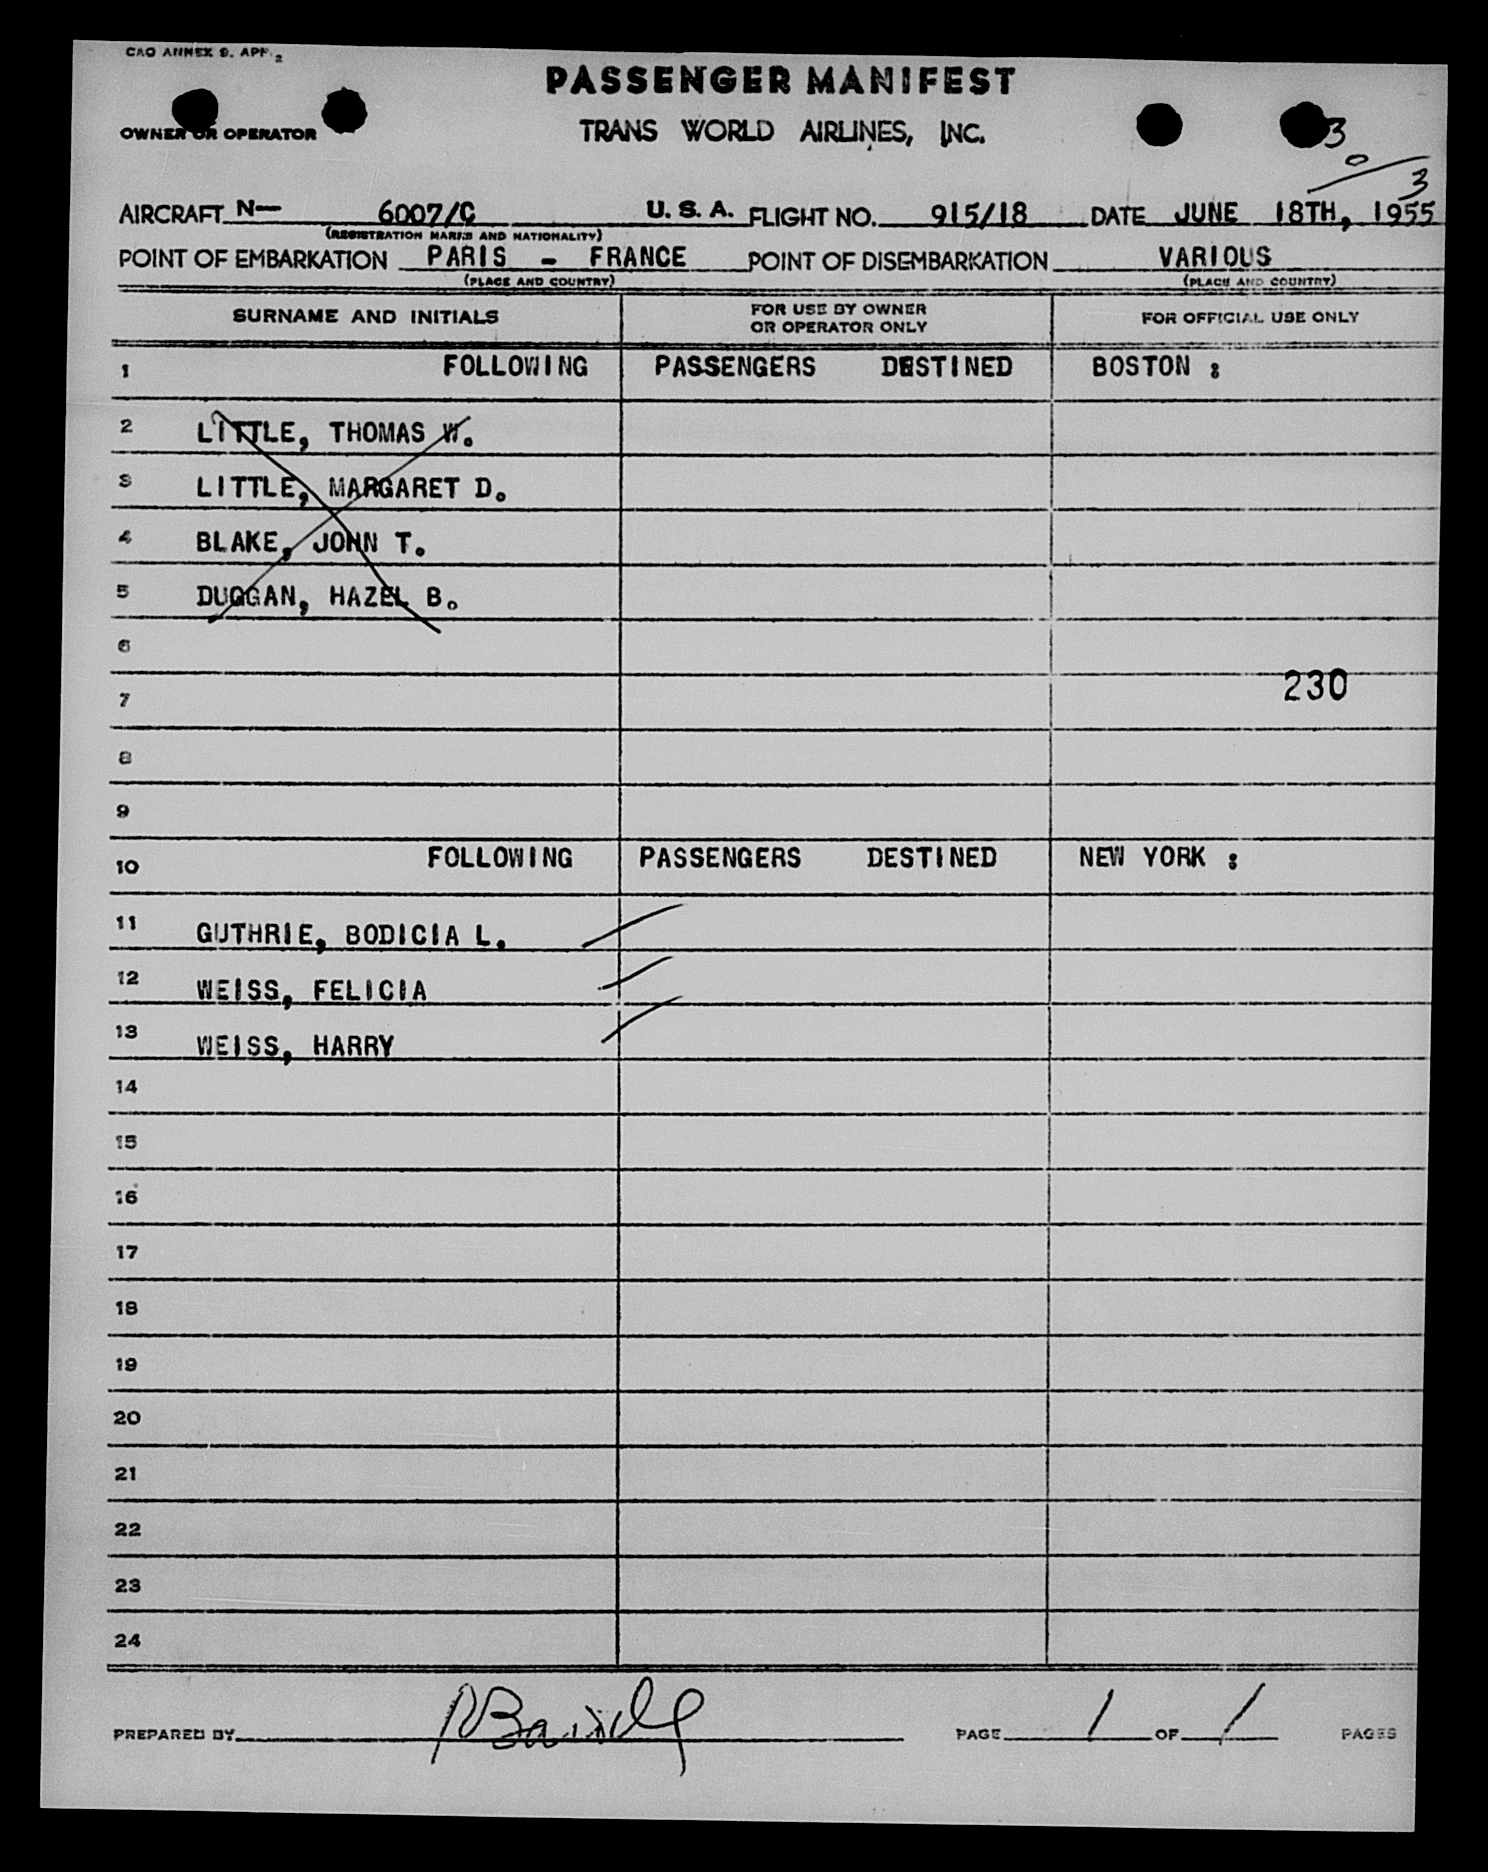 CAO ANNEX 9. APP. 2
PASSENGER MANIFEST
OWNER OR OPERATOR TRANS WORLD AIRLINES, INC.
3
0
3
AIRCRAFT N— 6007/C U. S. A. FLIGHT NO. 915/18 DATE JUNE 18TH, 1955
(REGISTRATION MARKS AND NATIONALITY)
POINT OF EMBARKATION PARIS - FRANCE POINT OF DISEMBARKATION VARIOUS
(PLACE AND COUNTRY) (PLACE AND COUNTRY)
SURNAME AND INITIALS FOR USE BY OWNER OR OPERATOR ONLY FOR OFFICIAL USE ONLY
1 FOLLOWING PASSENGERS DESTINED BOSTON :
2 LITTLE, THOMAS W.
3 LITTLE, MARGARET D.
4 BLAKE, JOHN T.
5 DUGGAN, HAZEL B.
6
230
7
8
9
10 FOLLOWING PASSENGERS DESTINED NEW YORK :
11 GUTHRIE, BODICIA L.
12 WEISS, FELICIA
13 WEISS, HARRY
14
15
16
17
18
19
20
21
22
23
24
PREPARED BY PAGE 1 OF 1 PAGES